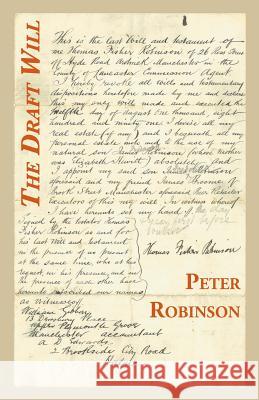 The Draft Will
This is the last Will and testament of
me Thomas Fisher Robinson of 26
Hyde Road Ardwick Manchester in the
County of Lancaster Commission Agent
I hereby revoke all wills and testamentary
dispositions heretofore made by me and declare
this my only will made and executed the
twelfth day of August one thousand eight
hundred and ninety one I devise all my
real estate (if any) and I bequeath all my
personal estate unto and to the use of my
natural son Robinson (whose mother
was Elizabeth ) absolutely and
I appoint my said son James Robinson
aforesaid and my friend James
Street Manchester aforesaid
executors of this my will In witness whereof
I have hereunto set my hand
Signed by the testator Thomas
Fisher Robinson as and for
his last Will and testament
in the presence of us present
at the same time, who at his
request, in his presence, and in
the presence of each other have
hereunto subscribed our names
as witnesses
Thomas Fisher Robinson
William
Place
Grove
Manchester accountant
A D Edwards
2 Brookside City Road
Peter
Robinson